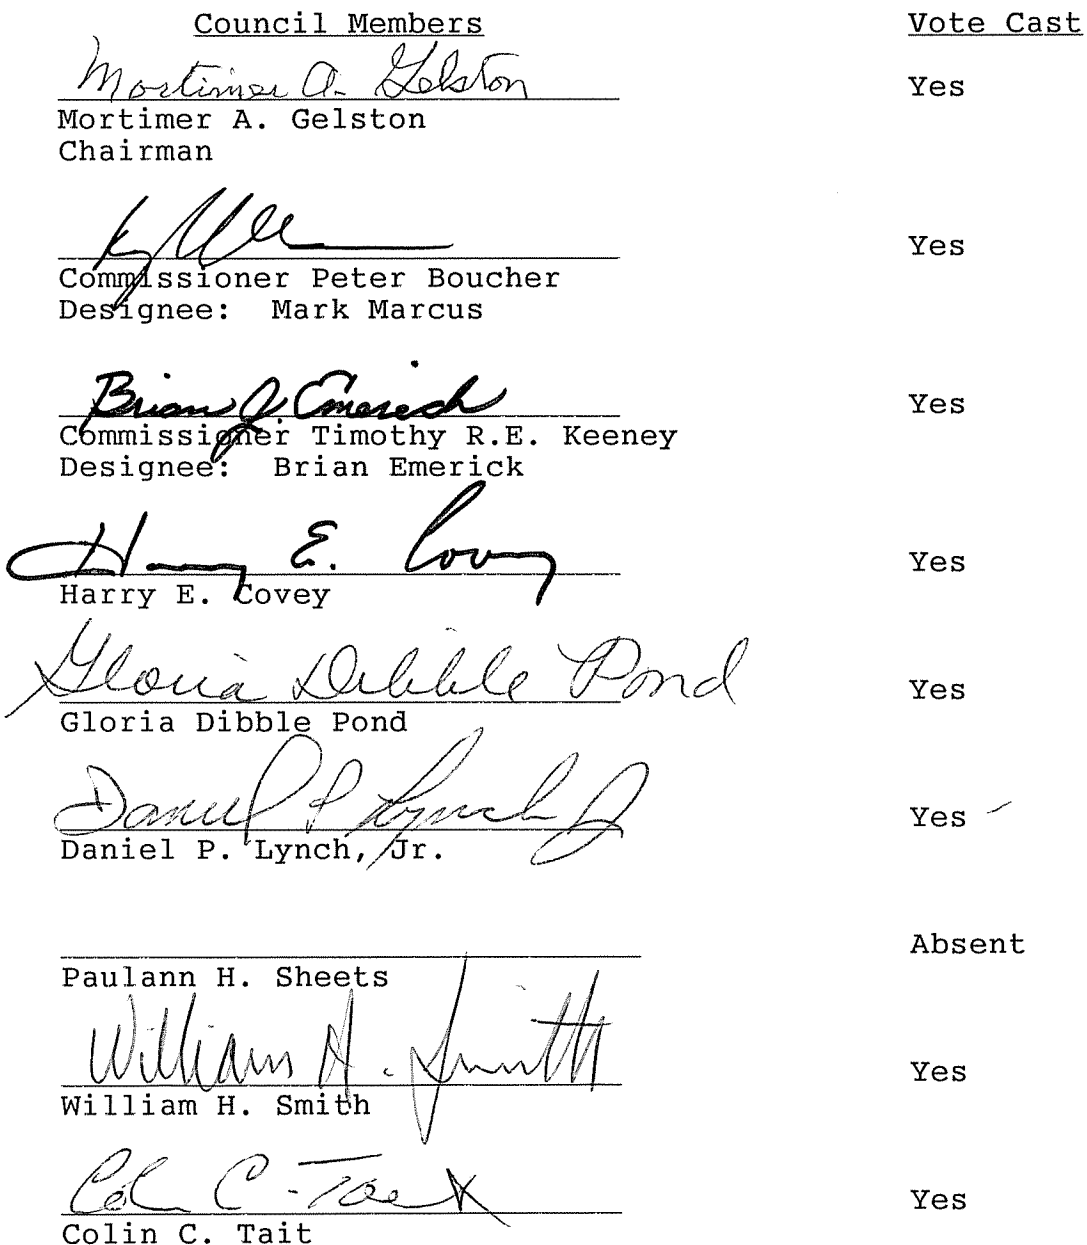 Council Members Vote Cast
Mortimer A. Gelston Yes
Mortimer A. Gelston
Chairman
Yes
Commissioner Peter Boucher
Designee: Mark Marcus
Brian J. Emerick Yes
Commissioner Timothy R.E. Keeney
Designee: Brian Emerick
Harry E. Covey Yes
Harry E. Covey
Gloria Dibble Pond Yes
Gloria Dibble Pond
Daniel P Lynch Jr Yes
Daniel P. Lynch, Jr.
Absent
Paulann H. Sheets
William H. Smith Yes
William H. Smith
Colin C. Tait Yes
Colin C. Tait